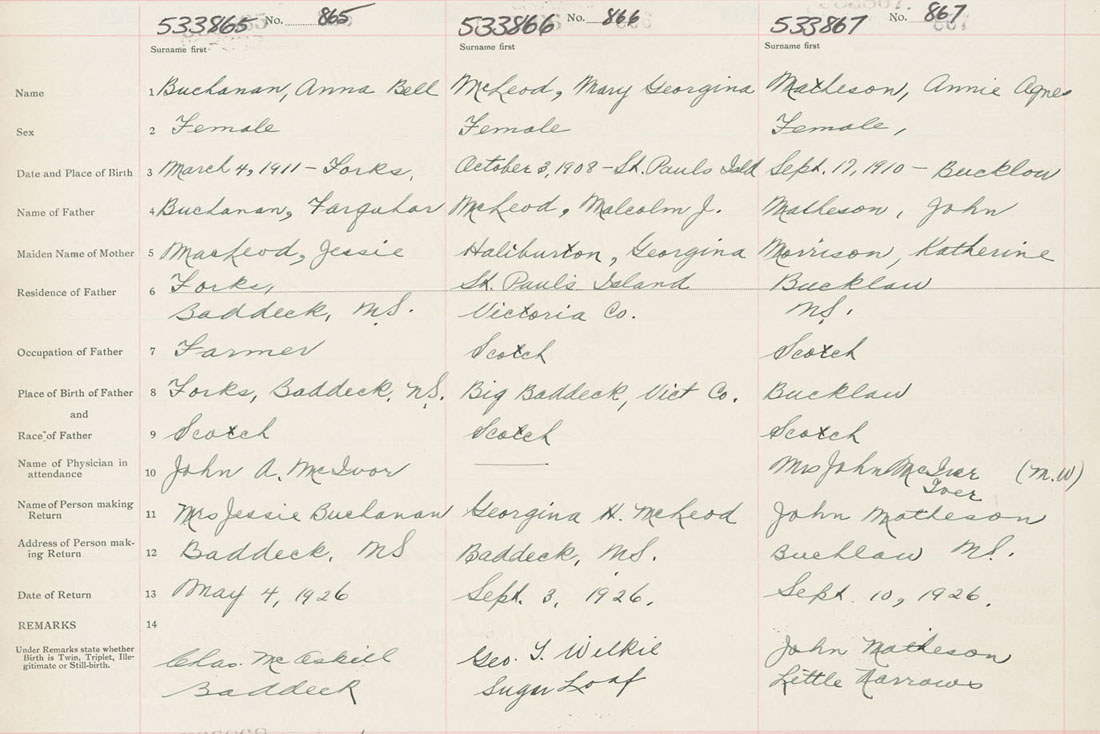 533865 No. 865 533866 No. 866 533867 No. 867
Surname first Surname first Surname first
Name 1 Buchanan, Anna Bell McLeod, Mary Georgina Matheson, Annie Agnes
Sex 2 Female Female Female,
Date and Place of Birth 3 March 4, 1911 - Forks, October 3, 1908 - St. Pauls Isld Sept. 17, 1910 - Bucklow
Name of Father 4 Buchanan, Farquhar McLeod, Malcolm J. Matheson, John
Maiden Name of Mother 5 MacLeod, Jessie Haliburton, Georgina Morrison, Katherine
Residence of Father 6 Forks, St. Paul's Island Bucklaw
Baddeck, N.S. Victoria Co. N.S.
Occupation of Father 7 Farmer Scotch Scotch
Place of Birth of Father 8 Forks, Baddeck, N.S. Big Baddeck, Vict Co. Bucklaw
and
Race of Father 9 Scotch Scotch Scotch
Name of Physician in attendance 10 John A. McIvor Mrs John McIver (M.W)
Iver
Name of Person making Return 11 Mrs Jessie Buchanan Georgina H. McLeod John Matheson
Address of Person making Return 12 Baddeck, NS Baddeck, N.S. Bucklaw N.S.
Date of Return 13 May 4, 1926 Sept. 3, 1926. Sept. 10, 1926.
REMARKS 14
Under Remarks state whether
Birth is Twin, Triplet, Ille-
gitimate or Still-birth.
Chas. McAskill Geo. T. Wilkie John Matheson
Baddeck Sugar Loaf Little Narrows